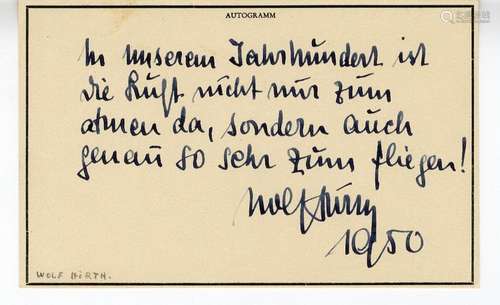 AUTOGRAMM
In unserem Jahrhundert ist
die Luft nicht nur zum
atmen da, sondern auch
genau so sehr zum fliegen!
Wolf Hirth
1950
WOLF HIRTH.